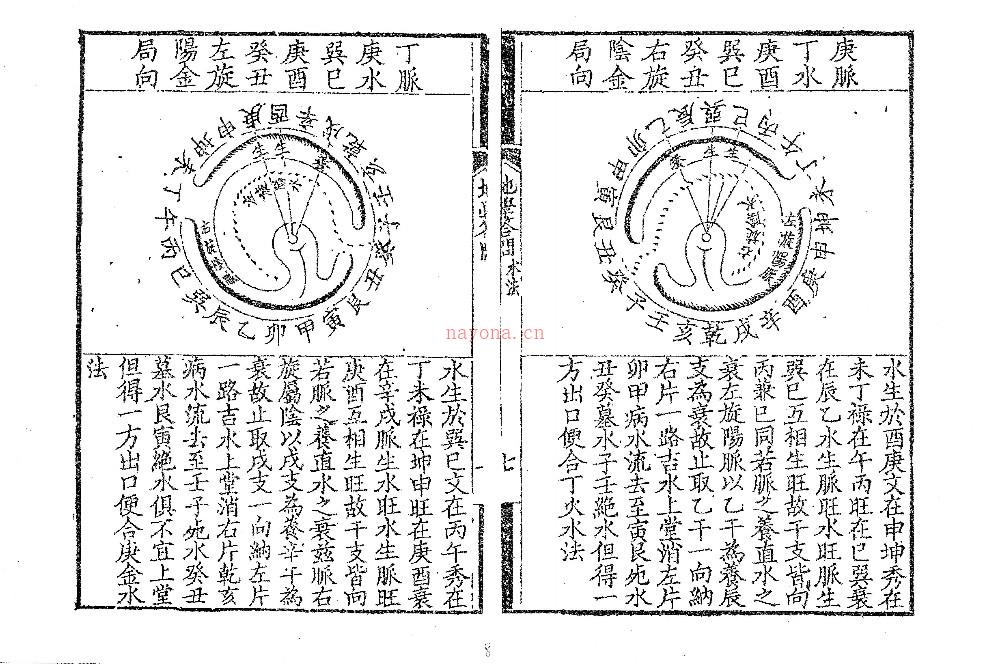 庚脈
丁水
庚酉
巽巳
癸丑
右旋
陰金
局向
丙午丁未坤申庚酉辛戌乾亥壬子癸丑艮寅甲卯乙辰巽巳
生
生
養
水生於酉庚文在申坤秀在
未丁祿在午丙旺在巳巽衰
在辰乙水生脈旺水旺脈生
巽巳互相生旺故干支皆向
丙兼巳同若脈之養直水之
衰左旋陽脈以乙干為養辰
支為衰故止取乙干一向納
右片一路吉水上堂消左片
卯甲病水流去至寅艮死水
丑癸墓水子壬絕水但得一
方出口便合丁火水法
地學答問
水法
七
丁脈
庚水
巽巳
庚酉
癸丑
左旋
陽金
局向
庚酉辛戌乾亥壬子癸丑艮寅甲卯乙辰巽巳丙午丁未坤申
生
生
養
水生於巽巳文在丙午秀在
丁未祿在坤申旺在庚酉衰
在辛戌脈生水旺水生脈旺
庚酉互相生旺故干支皆向
若脈之養直水之衰茲脈右
旋屬陰以戌支為養辛干為
衰故止取戌支一向納左片
一路吉水上堂消右片乾亥
病水流去至壬子死水癸丑
墓水艮寅絕水俱不宜上堂
但得一方出口便合庚金水
法
nayona.cn
8